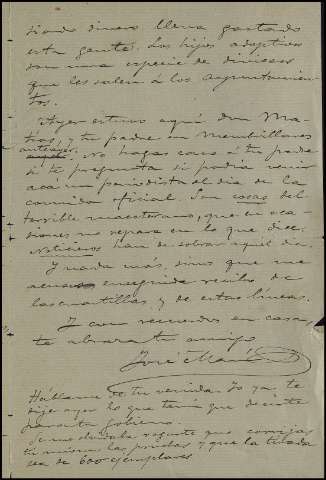 dinero lleva gastado
esta gente. Los hijos adoptivos
son una especie de
que les salen á los
tos.
Ayer estuvo aquí don Ma-
y tu padre en Membrillares
anteayer. No hagas caso á tu padre
si te pregunta si podía venir
acá un periodista el día de la
comida oficial. Son cosas del
terrible maestrano, que en oca-
siones no repara en lo que dice.
Noticieros han de sobrar aquel día.
Y nada más, sino que me
acuses enseguida recibo de
las cuartillas y de estas líneas.
Y con recuerdos en casa,
te abraza tu amigo
José
Háblame de tu venida. Yo ya te
dije ayer lo que tenía que decirte
Se me olvidaba rogarte que corrijas
tú mismo las pruebas y que la tirada
sea de 600 ejemplares